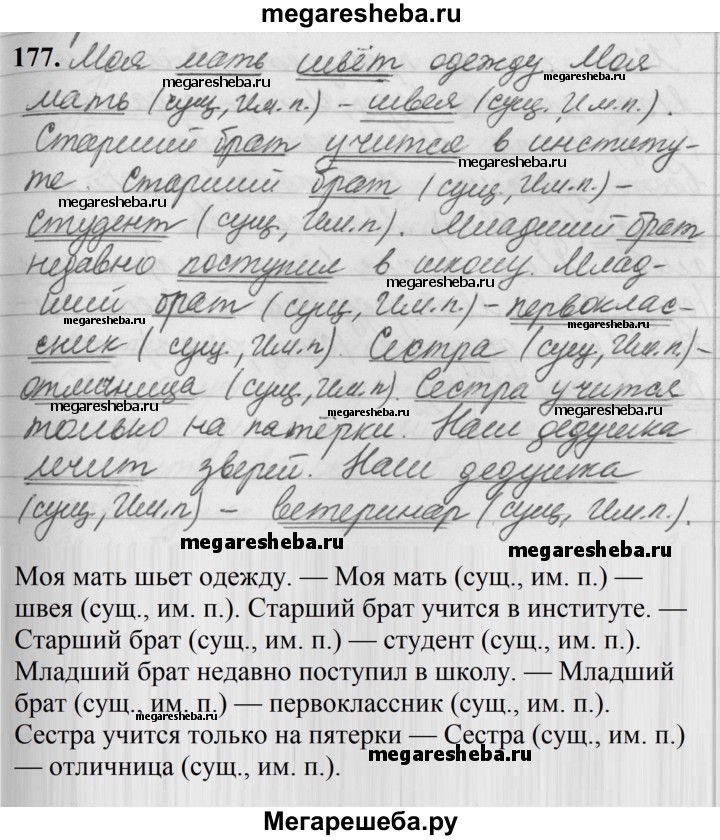 megaresheba.ru
177. Моя мать шьёт одежду. Моя
megaresheba.ru megaresheba.ru
мать (сущ, Им.п.) - швея (сущ. Им.п.).
Старший брат учится в институ-
megaresheba.ru
те. Старший брат (сущ, Им.п.) -
megaresheba.ru
студент (сущ, Им.п). Младший брат
недавно поступил в школу. Млад-
ший брат (сущ, Им.п.) - первоклас-
megaresheba.ru megaresheba.ru
сник (сущ., Им.п). Сестра (сущ, Им.п.) -
отличница (сущ, Им.п). Сестра учится
megaresheba.ru megaresheba.ru
только на пятёрки. Наш дедушка
лечит зверей. Наш дедушка
(сущ, Им.п) - ветеринар (сущ, Им.п.).
megaresheba.ru megaresheba.ru
Моя мать шьет одежду. — Моя мать (сущ., им. п.) —
швея (сущ., им. п.). Старший брат учится в институте. —
Старший брат (сущ., им. п.) — студент (сущ., им. п.).
Младший брат недавно поступил в школу. — Младший
брат (сущ., им. п.) — первоклассник (сущ., им. п.).
megaresheba.ru
Сестра учится только на пятерки — Сестра (сущ., им. п.)
megaresheba.ru
— отличница (сущ., им. п.).
Мегарешеба.ру